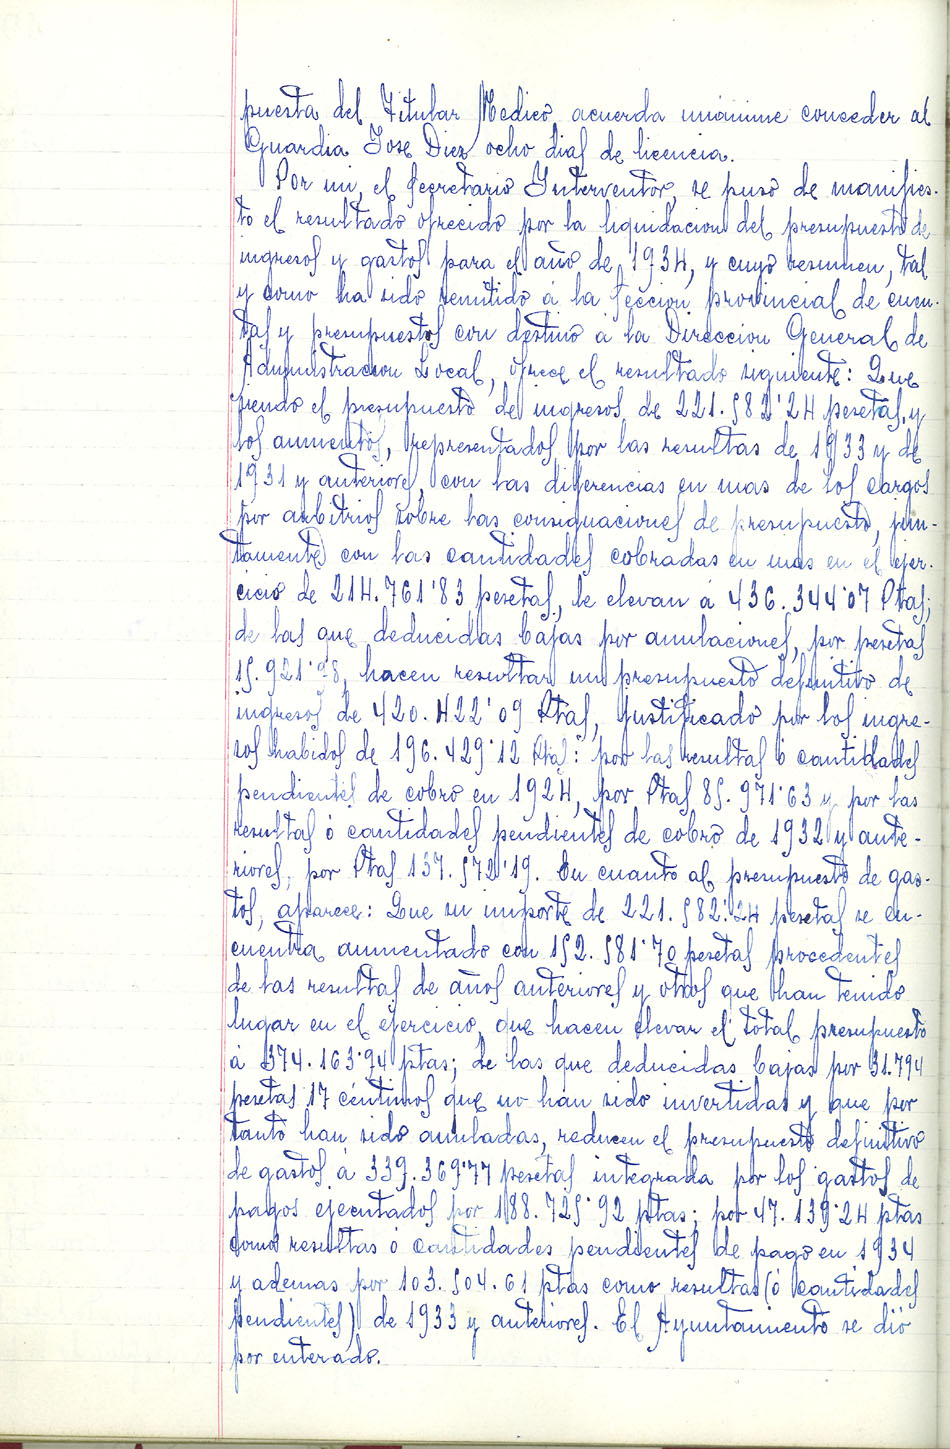 puesta del Titular Medico acuerda unánime conceder al
Guardia Jose Diez ocho dias de licencia.
Por mi, el Secretario Interventor, se puso de manifies-
to el resultado ofrecido por la liquidacion del presupuesto de
ingresos y gastos para el año de 1934, y cuyo resumen, tal
y como ha sido remitido á la Seccion provincial de cuen-
tas y presupuestos con destino a la Direccion General de
Administracion Local, ofrece el resultado siguiente: Que
siendo el presupuesto de ingresos de 221.582'24 pesetas, y
los aumentos, representados por las resultas de 1933 y de
1931 y anteriores, con las diferencias en mas de los cargos
por arbitrios sobre las consignaciones de presupuesto, jun-
tamente con las cantidades cobradas en mas en el ejer-
cicio de 214.761'83 pesetas, le elevan á 436.344'07 Ptas;
de las que deducidas bajas por anulaciones, por pesetas
15.921'98, hacen resultar un presupuesto definitivo de
ingresos de 420.422'09 Ptas, justificado por los ingre-
sos habidos de 196.429'12 Ptas: por las resultas ó cantidades
pendientes de cobro en 1924, por Ptas 85.971'63 y por las
resultas ó cantidades pendientes de cobro de 1932 y ante-
riores, por Ptas 137.572'19. En cuanto al presupuesto de gas-
tos, aparece: Que su importe de 221.582'24 pesetas se en-
cuentra aumentado con 152.581'70 pesetas procedentes
de las resultas de años anteriores y otros que han tenido
lugar en el ejercicio, que hacen elevar el total presupuesto
á 374.163'94 ptas; de las que deducidas bajas por 31.794
pesetas 17 céntimos que no han sido invertidas y que por
tanto han sido anuladas, reducen el presupuesto definitivo
de gastos á 339.369'77 pesetas integrada por los gastos de
pagos ejecutados por 188.725'92 ptas; por 47.139'24 ptas
como resultas ó cantidades pendientes de pago en 1934
y ademas por 103.504.61 ptas como resultas (ó cantidades
pendientes) de 1933 y anteriores. El Ayuntamiento se dió
por enterado.